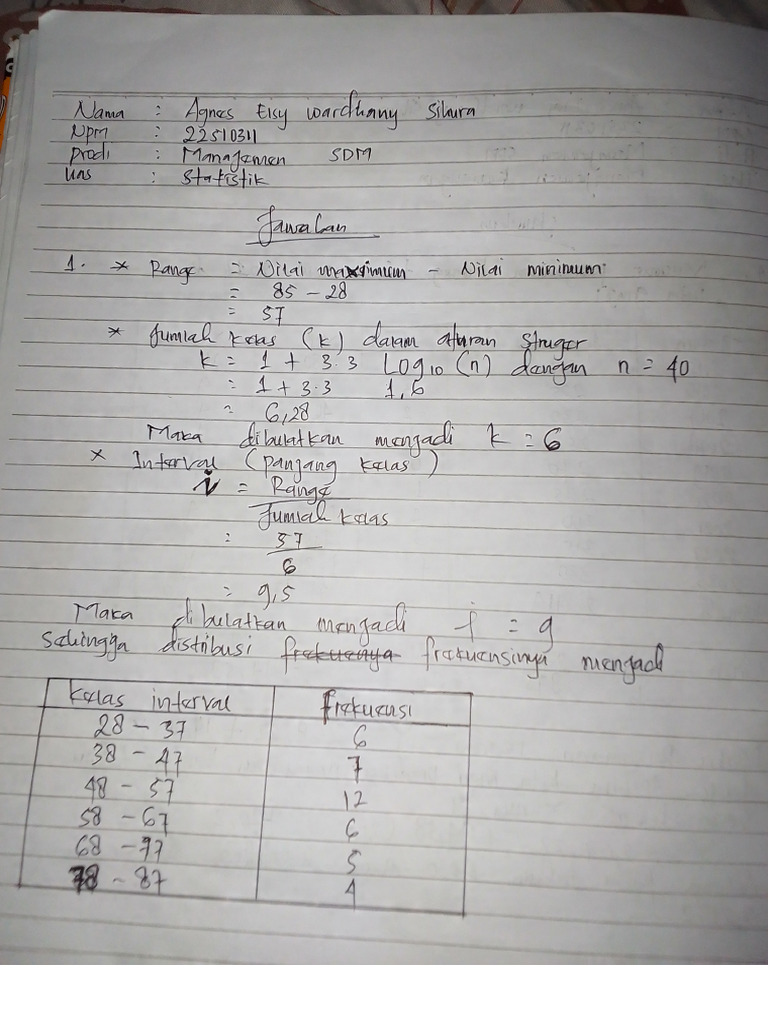 Nama : Agnes Eisy Wardhany Sihura
NPM : 22510311
Prodi : Manajemen SDM
UAS : Statistik
Jawaban
1. * Range = Nilai maxsimum - Nilai minimum
= 85 - 28
= 57
* Jumlah kelas (k) dalam aturan Struger
k = 1 + 3.3 Log10 (n) dengan n = 40
= 1 + 3.3 1,6
= 6,28
Maka dibulatkan menjadi k = 6
* Interval (panjang kelas)
i = Range
Jumlah kelas
: 57
6
= 9,5
Maka dibulatkan menjadi i = 9
Sehingga distribusi frekuensinya menjadi
Kelas interval Frekuensi
28 - 37 6
38 - 47 7
48 - 57 12
58 - 67 6
68 - 77 5
78 - 87 4